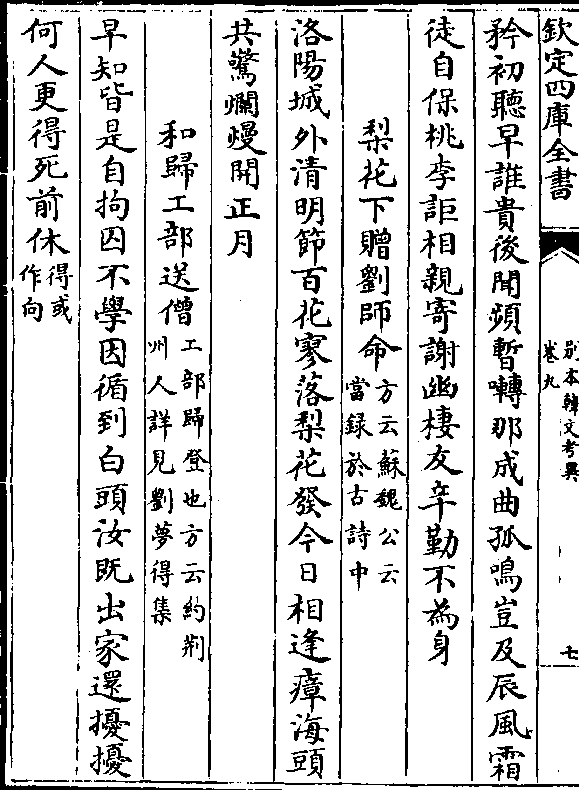 欽定四庫全書
别本韓文考異
卷九
七
矜初聽早誰貴後聞頻暫囀那成曲孤鳴豈及辰風霜
徒自保桃李詎相親寄謝幽棲友辛勤不為身
梨花下贈劉師命方云蘇魏公云
當録於古詩中
洛陽城外清明節百花寥落梨花發今日相逢瘴海頭
共驚爛熳開正月
和歸工部送僧工部歸登也方云約荆
州人詳見劉夢得集
早知皆是自拘囚不學因循到白頭汝既出家還擾擾
何人更得死前休得或
作向